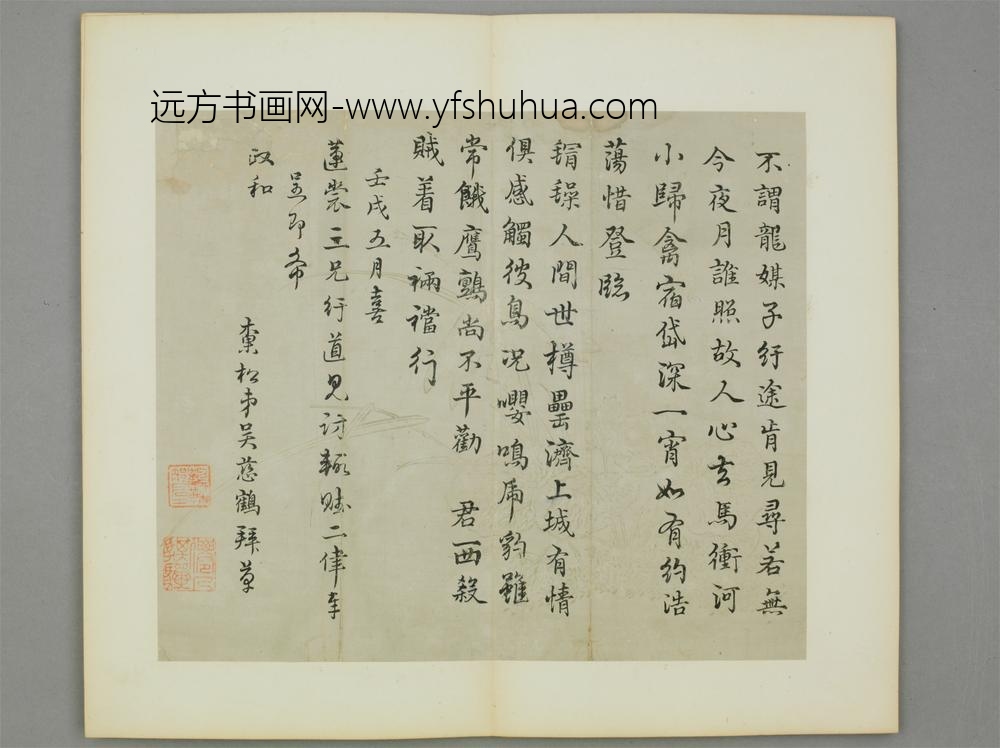 远方书画网-www.yfshuhua.com
不謂龍媒子行途肯見尋若無
今夜月誰照故人心去馬衝河
小歸禽宿岱深一宵如有約浩
蕩惜登臨
人間世樽罍濟上城有情
俱感觸彼鳥況嚶鳴虎豹雖
常餓鷹鸇尚不平勸 君一西殺
賊着取裲襠行
壬戌五月喜
蓮裳三兄行道見訪輒賦二律奉
呈即希
政和
巢松弟吳慈鶴拜草